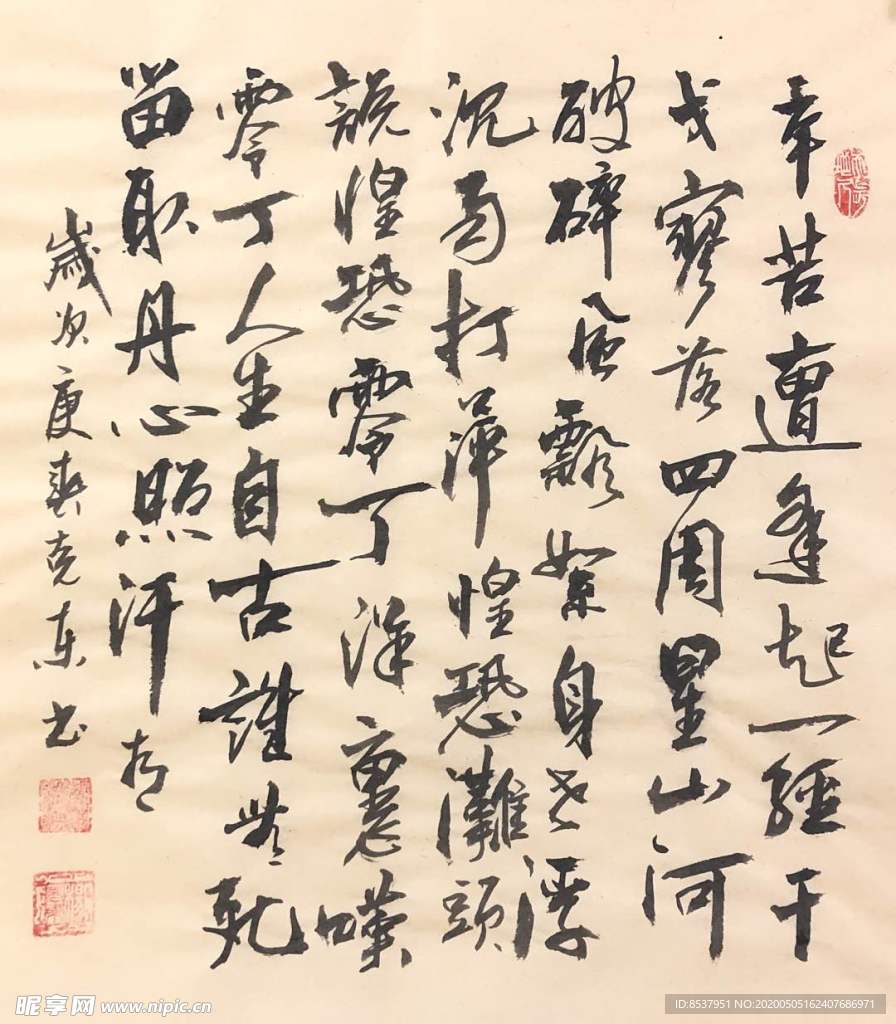 辛苦遭逢起一經干
戈寥落四周星山河
破碎風飄絮身世浮
沉雨打萍惶恐灘頭
說惶恐零丁洋裏嘆
零丁人生自古誰無死
留取丹心照汗青
歲次庚克东书
昵享网 www.nipic.cn
ID:8537951 NO:20200505162407686971